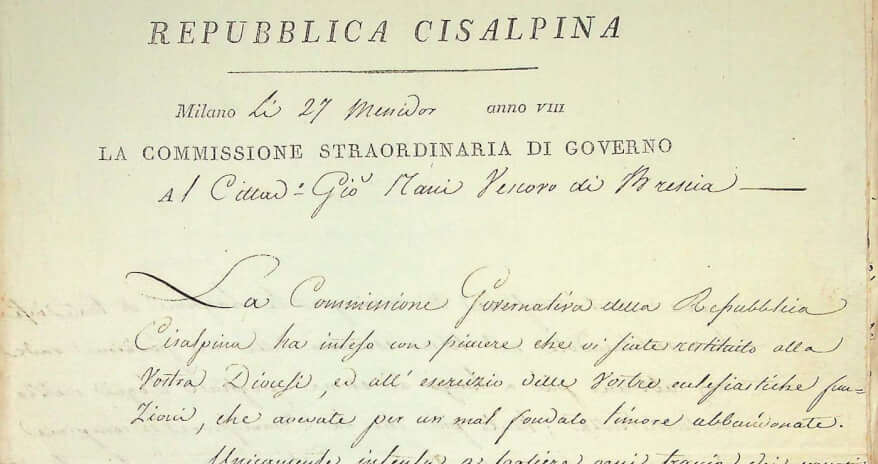 REPUBBLICA CISALPINA
Milano li 27 Messidor anno VIII
LA COMMISSIONE STRAORDINARIA DI GOVERNO
Al Cittad.º Gio Nani Vescovo di Brescia
La Commissione Governativa della Repubblica
Cisalpina ha inteso con piacere che vi siate restituito alla
Vostra Diocesi, ed all' esercizio delle Vostre eclesiastiche fun-
Zioni, che avevate per un mal fondato timore abbandonate.
Unicamente intenta a togliere ogni traccia dei